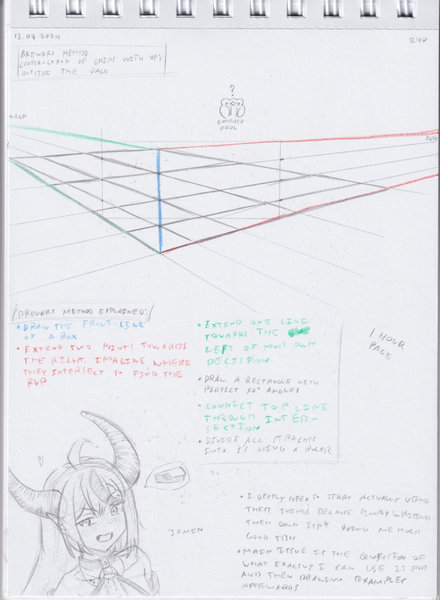 12.08.2024
248
BREWERS METHOD
CONSTRUCTION OF GRIDS WITH VP'S
OUTSIDE THE PAGE
?
CONFUSED
FROG
BREWERS METHOD EXPLAINED:
• DRAW THE FRONT LINE
OF A BOX
• EXTEND TWO POINTS TOWARDS
THE RIGHT. IMAGINE WHERE
THEY INTERSECT TO FIND THE
RVP
• EXTEND ONE LINE
TOWARDS THE
LEFT OF YOUR OWN
DECISION
• DRAW A RECTANGLE WITH
PERFECT 90° ANGLES
• CONNECT TOP LINE
THROUGH INTER-
SECTION
• DIVIDE ALL STRAIGHTS
INTO USING A RULER
1 HOUR
PAGE
30 MIN
• I NEED TO START ACTUALLY USING
THESE THINGS BECAUSE SIMPLY WRITING
THEM DOWN ISN'T DOING ME MUCH
GOOD
• MAIN ISSUE IS THE QUESTION OF
WHAT EXACTLY I CAN USE IT FOR
AND THEN DRAWING EXAMPLES